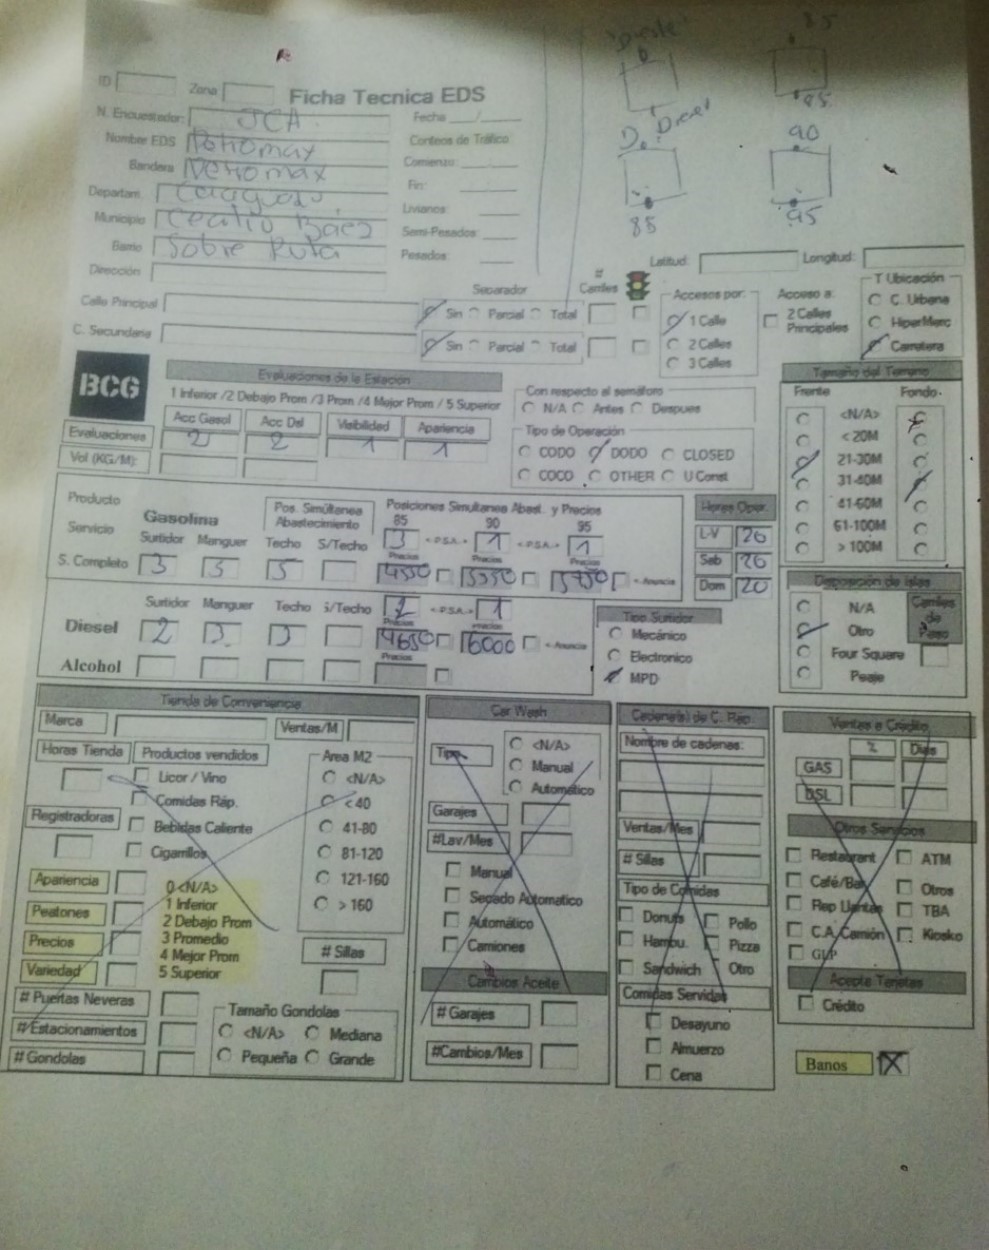 'Diesel' 85
85
ID Zona Ficha Tecnica EDS
N. Encuestador: JCA Fecha / D. Diesel 90
Nomber EDS Petromax Conteos de Tráfico
Bandera Petromax Comienzo:
Departam. Caaguazu Fin: 85 95
Municipio Cecilio Báez Livianos:
Barrio Sobre Ruta Semi-Pesados:
Dirección Pesados: Latitud: Longitud:
Calle Principal Separador # Carriles
Sin Parcial Total
C. Secundaria Sin Parcial Total
Accesos por:
1 Calle
2 Calles
3 Calles
Acceso a:
2 Calles
Principales
T Ubicación
C. Urbana
HiperMerc
Carretera
BCG
Evaluaciones de la Estación
1 Inferior /2 Debajo Prom /3 Prom /4 Mejor Prom / 5 Superior
Acc Gasol Acc Dsl Visibilidad Apariencia
Evaluaciones 2 2 1 1
Vol (KG/M):
Con respecto al semáforo
N/A Antes Despues
Tipo de Operación
CODO DODO CLOSED
COCO OTHER U Const
Tamaño del Terreno
Frente Fondo
<N/A>
< 20M
21-30M
31-40M
41-60M
61-100M
> 100M
Producto
Servicio
Gasolina
Pos. Simútanea
Abastecimiento
Posiciones Simultanea Abast. y Precios
85 90 95
3 <-P.S.A.-> 1 <-P.S.A.-> 1
Surtidor Manguer Techo S/Techo Precios Precios Precios
S. Completo 3 5 5 4550 5350 5750 <-Anuncia
Horas Oper.
L-V 20
Sab 20
Dom 20
Surtidor Manguer Techo S/Techo 2 <-P.S.A.-> 1
Precios Precios
Diesel 2 3 3 4650 6000 <-Anuncia
Precios
Alcohol
Tipo Surtidor
Mecánico
Electronico
MPD
Disposición de Islas
N/A
Otro
Four Square
Peaje
Carriles
de
Paso
Tienda de Conveniencia
Marca Ventas/M
Horas Tienda Productos vendidos
Licor / Vino
Comidas Ráp.
Bebidas Caliente
Cigarrillos
Registradoras
Area M2
<N/A>
< 40
41-80
81-120
121-160
> 160
Apariencia
Peatones
Precios
Variedad
0 <N/A>
1 Inferior
2 Debajo Prom
3 Promedio
4 Mejor Prom
5 Superior
# Sillas
# Puertas Neveras
# Estacionamientos
# Gondolas
Tamaño Gondolas
<N/A> Mediana
Pequeña Grande
Car Wash
Tipo
<N/A>
Manual
Automático
Garajes
#Lav/Mes
Manual
Secado Automatico
Automático
Camiones
Cambios Aceite
# Garajes
#Cambios/Mes
Cadena(s) de C. Rap.
Nombre de cadenas:
Ventas/Mes
# Sillas
Tipo de Comidas
Donuts Pollo
Hambu. Pizza
Sandwich Otro
Comidas Servidas
Desayuno
Almuerzo
Cena
Ventas a Crédito
% Dias
GAS
DSL
Otros Servicios
Restaurant ATM
Café/Bar Otros
Rep Llantas TBA
C.A. Camión Kiosko
GLP
Acepta Tarjetas
Crédito
Banos X